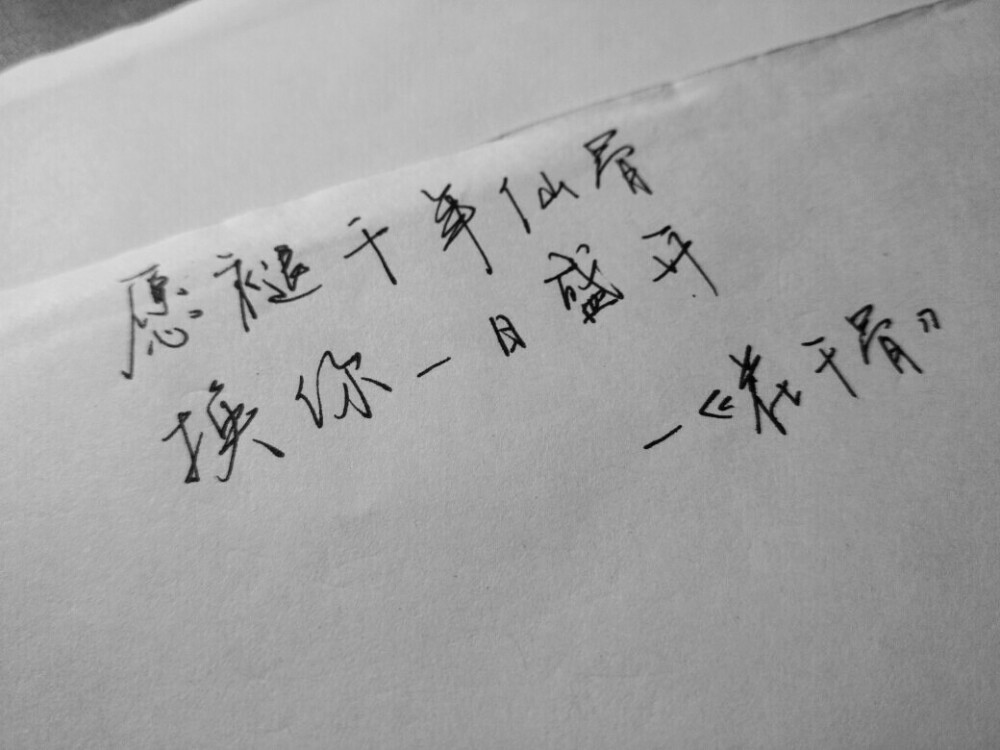 愿褪千年仙骨
换你一日盛开
—《花千骨》